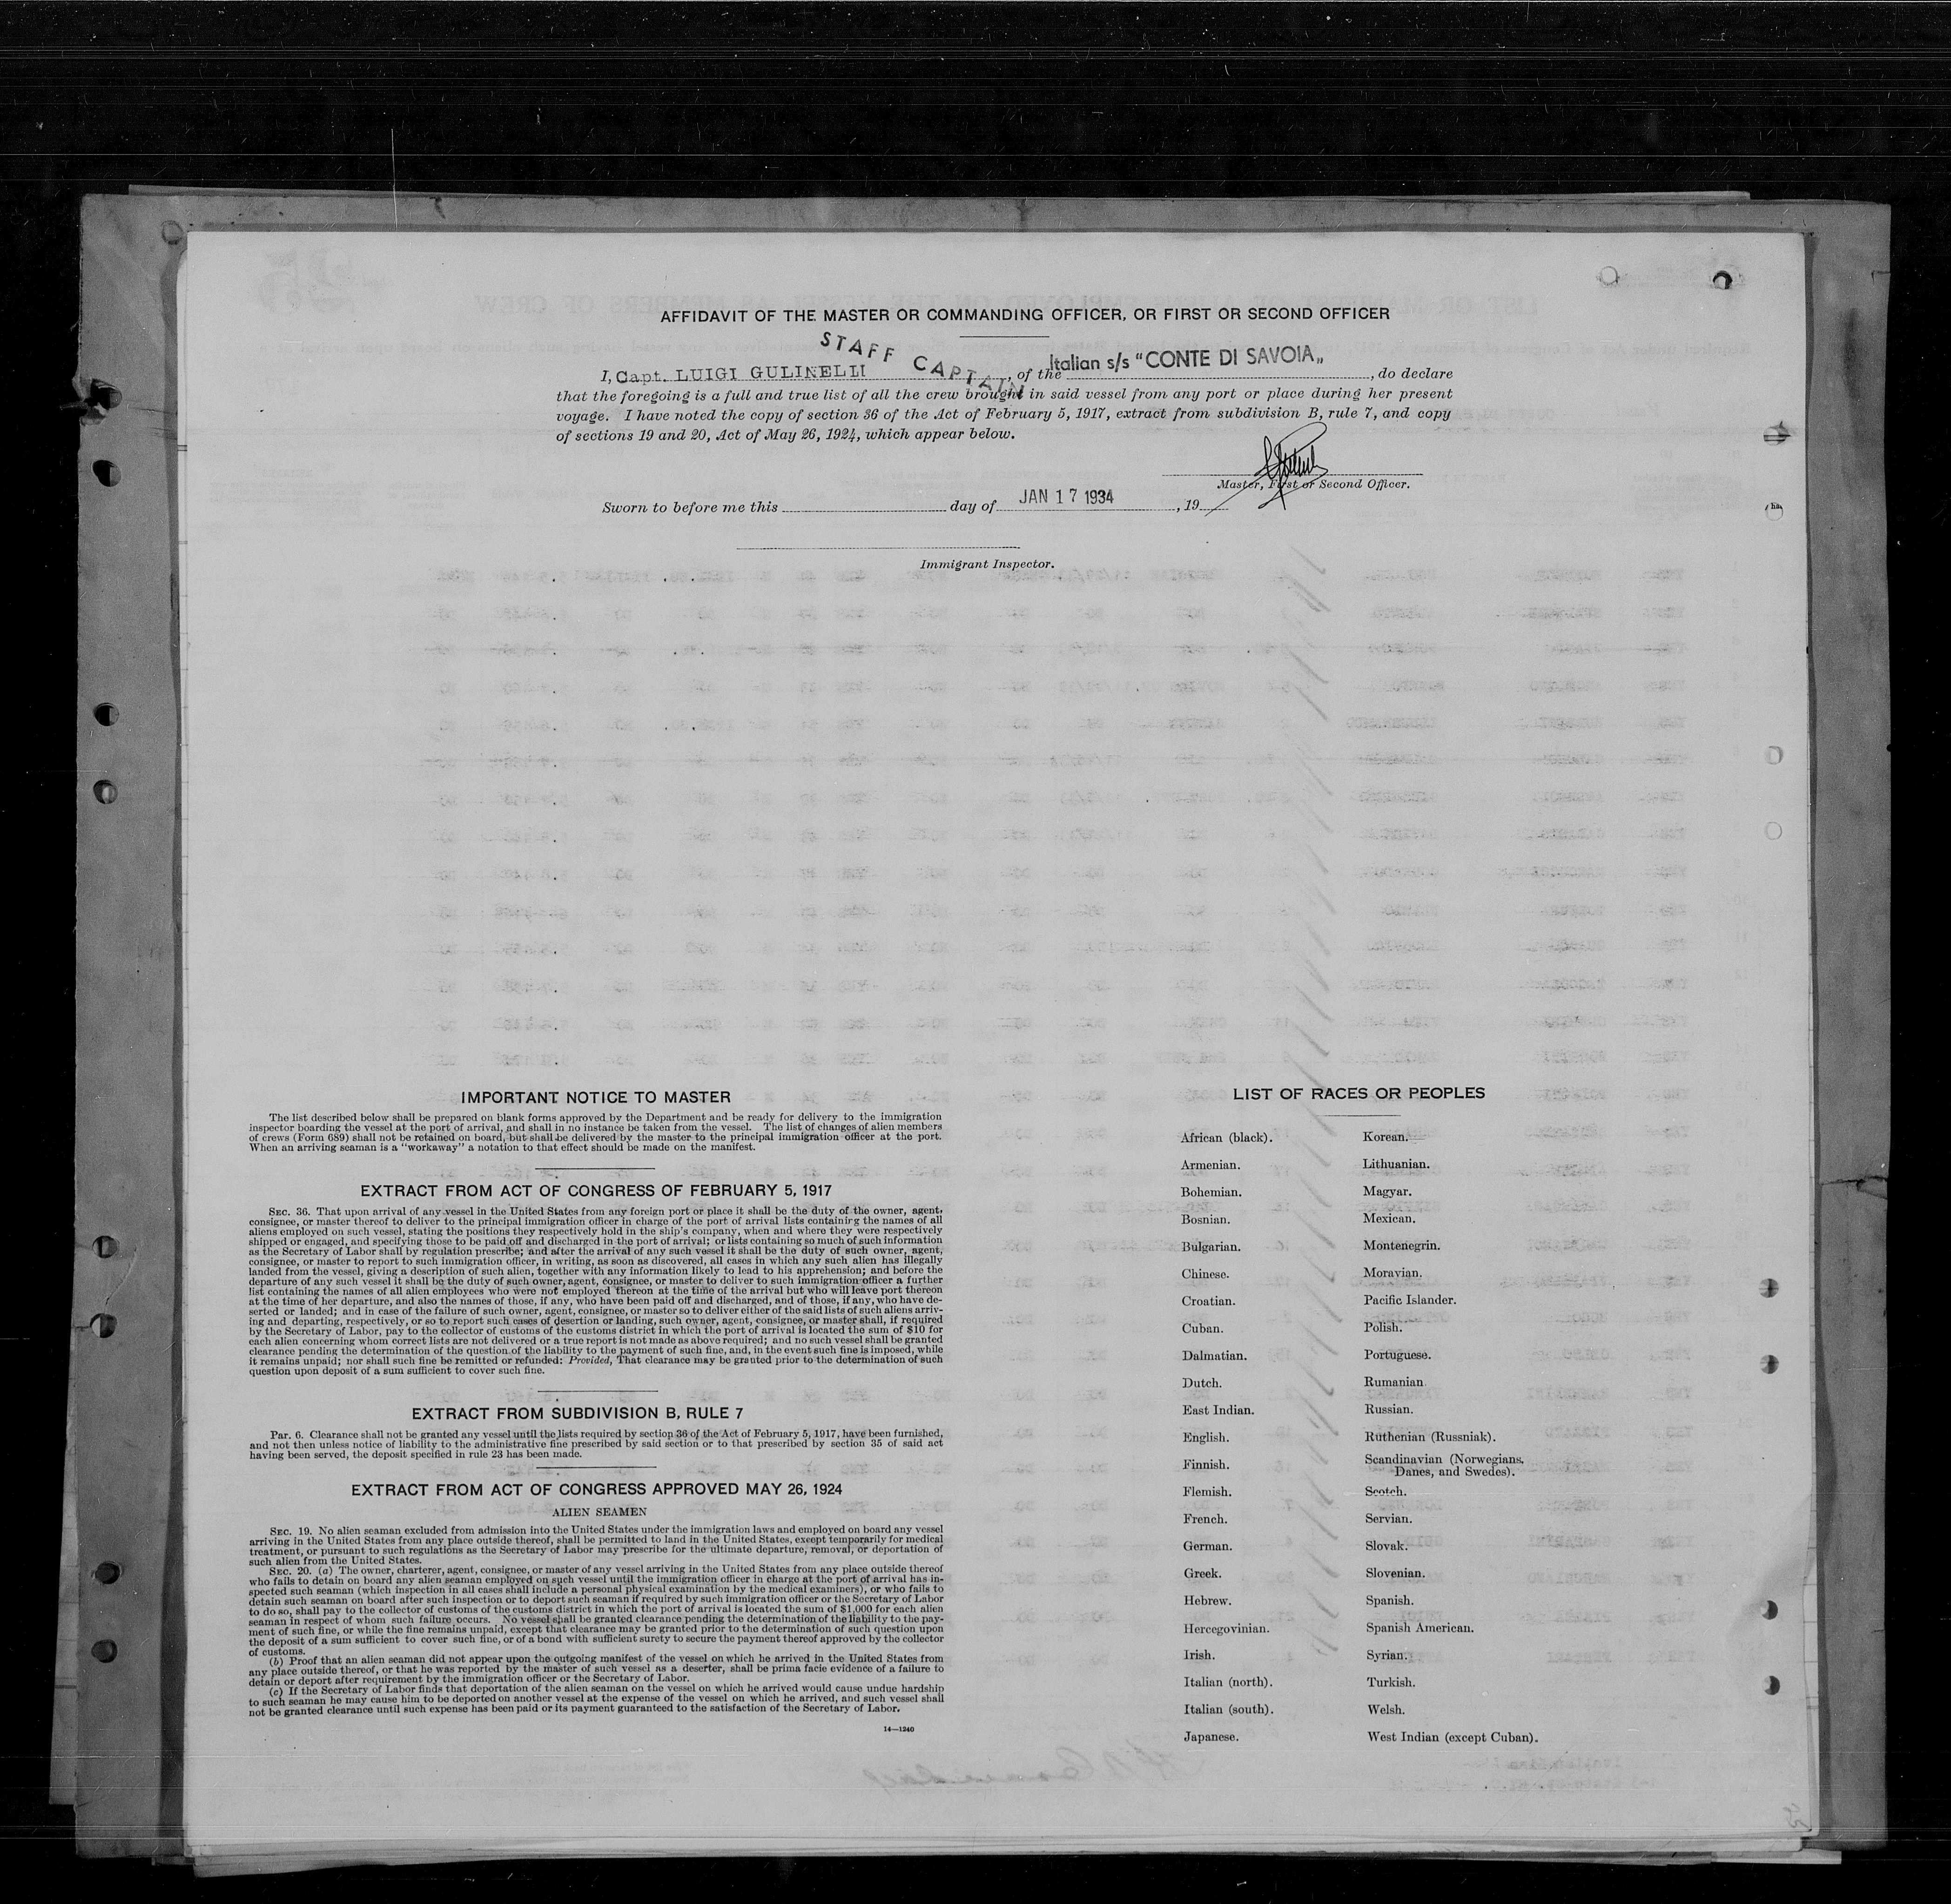 AFFIDAVIT OF THE MASTER OR COMMANDING OFFICER, OR FIRST OR SECOND OFFICER
STAFF CAPTAIN
I, Capt. LUIGI GULINELLI, of the Italian s/s "CONTE DI SAVOIA„, do declare
that the foregoing is a full and true list of all the crew brought in said vessel from any port or place during her present
voyage. I have noted the copy of section 36 of the Act of February 5, 1917, extract from subdivision B, rule 7, and copy
of sections 19 and 20, Act of May 26, 1924, which appear below.
Master, First or Second Officer.
Sworn to before me this day of JAN 17 1934, 19
Immigrant Inspector.
IMPORTANT NOTICE TO MASTER
The list described below shall be prepared on blank forms approved by the Department and be ready for delivery to the immigration
inspector boarding the vessel at the port of arrival, and shall in no instance be taken from the vessel. The list of changes of alien members
of crews (Form 689) shall not be retained on board, but shall be delivered by the master to the principal immigration officer at the port.
When an arriving seaman is a "workaway" a notation to that effect should be made on the manifest.
EXTRACT FROM ACT OF CONGRESS OF FEBRUARY 5, 1917
SEC. 36. That upon arrival of any vessel in the United States from any foreign port or place it shall be the duty of the owner, agent,
consignee, or master thereof to deliver to the principal immigration officer in charge of the port of arrival lists containing the names of all
aliens employed on such vessel, stating the positions they respectively hold in the ship's company, when and where they were respectively
shipped or engaged, and specifying those to be paid off and discharged in the port of arrival; or lists containing so much of such information
as the Secretary of Labor shall by regulation prescribe; and after the arrival of any such vessel it shall be the duty of such owner, agent,
consignee, or master to report to such immigration officer, in writing, as soon as discovered, all cases in which any such alien has illegally
landed from the vessel, giving a description of such alien, together with any information likely to lead to his apprehension; and before the
departure of any such vessel it shall be the duty of such owner, agent, consignee, or master to deliver to such immigration officer a further
list containing the names of all alien employees who were not employed thereon at the time of the arrival but who will leave port thereon
at the time of her departure, and also the names of those, if any, who have been paid off and discharged, and of those, if any, who have de-
serted or landed; and in case of the failure of such owner, agent, consignee, or master so to deliver either of the said lists of such aliens arriv-
ing and departing, respectively, or so to report such cases of desertion or landing, such owner, agent, consignee, or master shall, if required
by the Secretary of Labor, pay to the collector of customs of the customs district in which the port of arrival is located the sum of $10 for
each alien concerning whom correct lists are not delivered or a true report is not made as above required; and no such vessel shall be granted
clearance pending the determination of the question of the liability to the payment of such fine, and, in the event such fine is imposed, while
it remains unpaid; nor shall such fine be remitted or refunded: Provided, That clearance may be granted prior to the determination of such
question upon deposit of a sum sufficient to cover such fine.
EXTRACT FROM SUBDIVISION B, RULE 7
Par. 6. Clearance shall not be granted any vessel until the lists required by section 36 of the Act of February 5, 1917, have been furnished,
and not then unless notice of liability to the administrative fine prescribed by said section or to that prescribed by section 35 of said act
having been served, the deposit specified in rule 23 has been made.
EXTRACT FROM ACT OF CONGRESS APPROVED MAY 26, 1924
ALIEN SEAMEN
SEC. 19. No alien seaman excluded from admission into the United States under the immigration laws and employed on board any vessel
arriving in the United States from any place outside thereof, shall be permitted to land in the United States, except temporarily for medical
treatment, or pursuant to such regulations as the Secretary of Labor may prescribe for the ultimate departure, removal, or deportation of
such alien from the United States.
SEC. 20. (a) The owner, charterer, agent, consignee, or master of any vessel arriving in the United States from any place outside thereof
who fails to detain on board any alien seaman employed on such vessel until the immigration officer in charge at the port of arrival has in-
spected such seaman (which inspection in all cases shall include a personal physical examination by the medical examiners), or who fails to
detain such seaman on board after such inspection or to deport such seaman if required by such immigration officer or the Secretary of Labor
to do so, shall pay to the collector of customs of the customs district in which the port of arrival is located the sum of $1,000 for each alien
seaman in respect of whom such failure occurs. No vessel shall be granted clearance pending the determination of the liability to the pay-
ment of such fine, or while the fine remains unpaid, except that clearance may be granted prior to the determination of such question upon
the deposit of a sum sufficient to cover such fine, or of a bond with sufficient surety to secure the payment thereof approved by the collector
of customs.
(b) Proof that an alien seaman did not appear upon the outgoing manifest of the vessel on which he arrived in the United States from
any place outside thereof, or that he was reported by the master of such vessel as a deserter, shall be prima facie evidence of a failure to
detain or deport after requirement by the immigration officer or the Secretary of Labor.
(c) If the Secretary of Labor finds that deportation of the alien seaman on the vessel on which he arrived would cause undue hardship
to such seaman he may cause him to be deported on another vessel at the expense of the vessel on which he arrived, and such vessel shall
not be granted clearance until such expense has been paid or its payment guaranteed to the satisfaction of the Secretary of Labor.
14—1240
LIST OF RACES OR PEOPLES
African (black).
Armenian.
Bohemian.
Bosnian.
Bulgarian.
Chinese.
Croatian.
Cuban.
Dalmatian.
Dutch.
East Indian.
English.
Finnish.
Flemish.
French.
German.
Greek.
Hebrew.
Hercegovinian.
Irish.
Italian (north).
Italian (south).
Japanese.
Korean.
Lithuanian.
Magyar.
Mexican.
Montenegrin.
Moravian.
Pacific Islander.
Polish.
Portuguese.
Rumanian
Russian.
Ruthenian (Russniak).
Scandinavian (Norwegians,
Danes, and Swedes).
Scotch.
Servian.
Slovak.
Slovenian.
Spanish.
Spanish American.
Syrian.
Turkish.
Welsh.
West Indian (except Cuban).